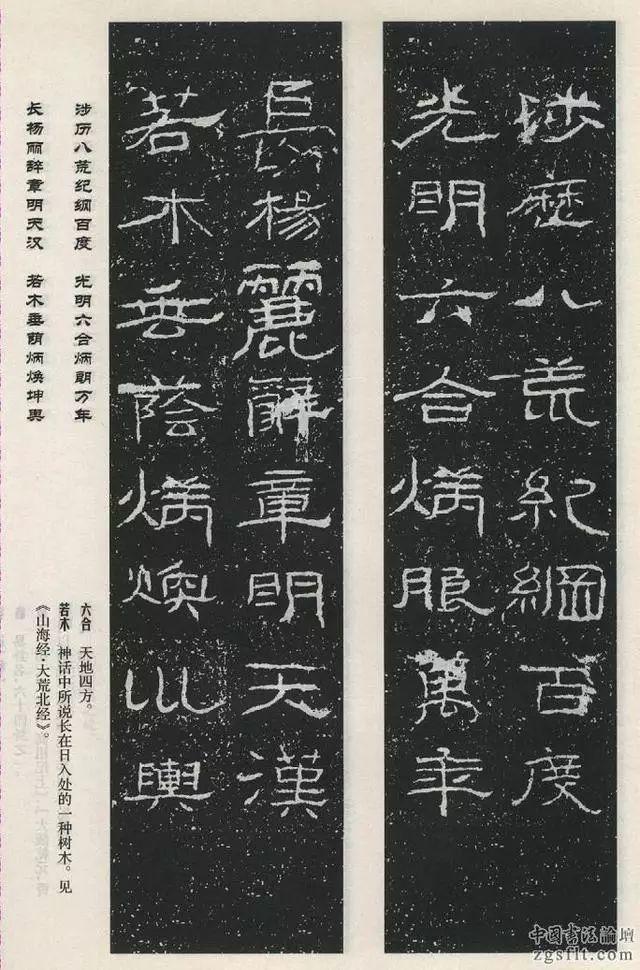 涉歷八荒紀綱百度
光明六合炳朖萬年
長楊麗辭章明天漢
若木垂蔭炳煥巛輿
涉历八荒纪纲百度 光明六合炳朗万年
长杨丽辞章明天汉 若木垂荫炳焕坤舆
六合 天地四方。
若木 神话中所说长在日入处的一种树木。见
《山海经·大荒北经》。
中国书法論壇
zgsflt.com